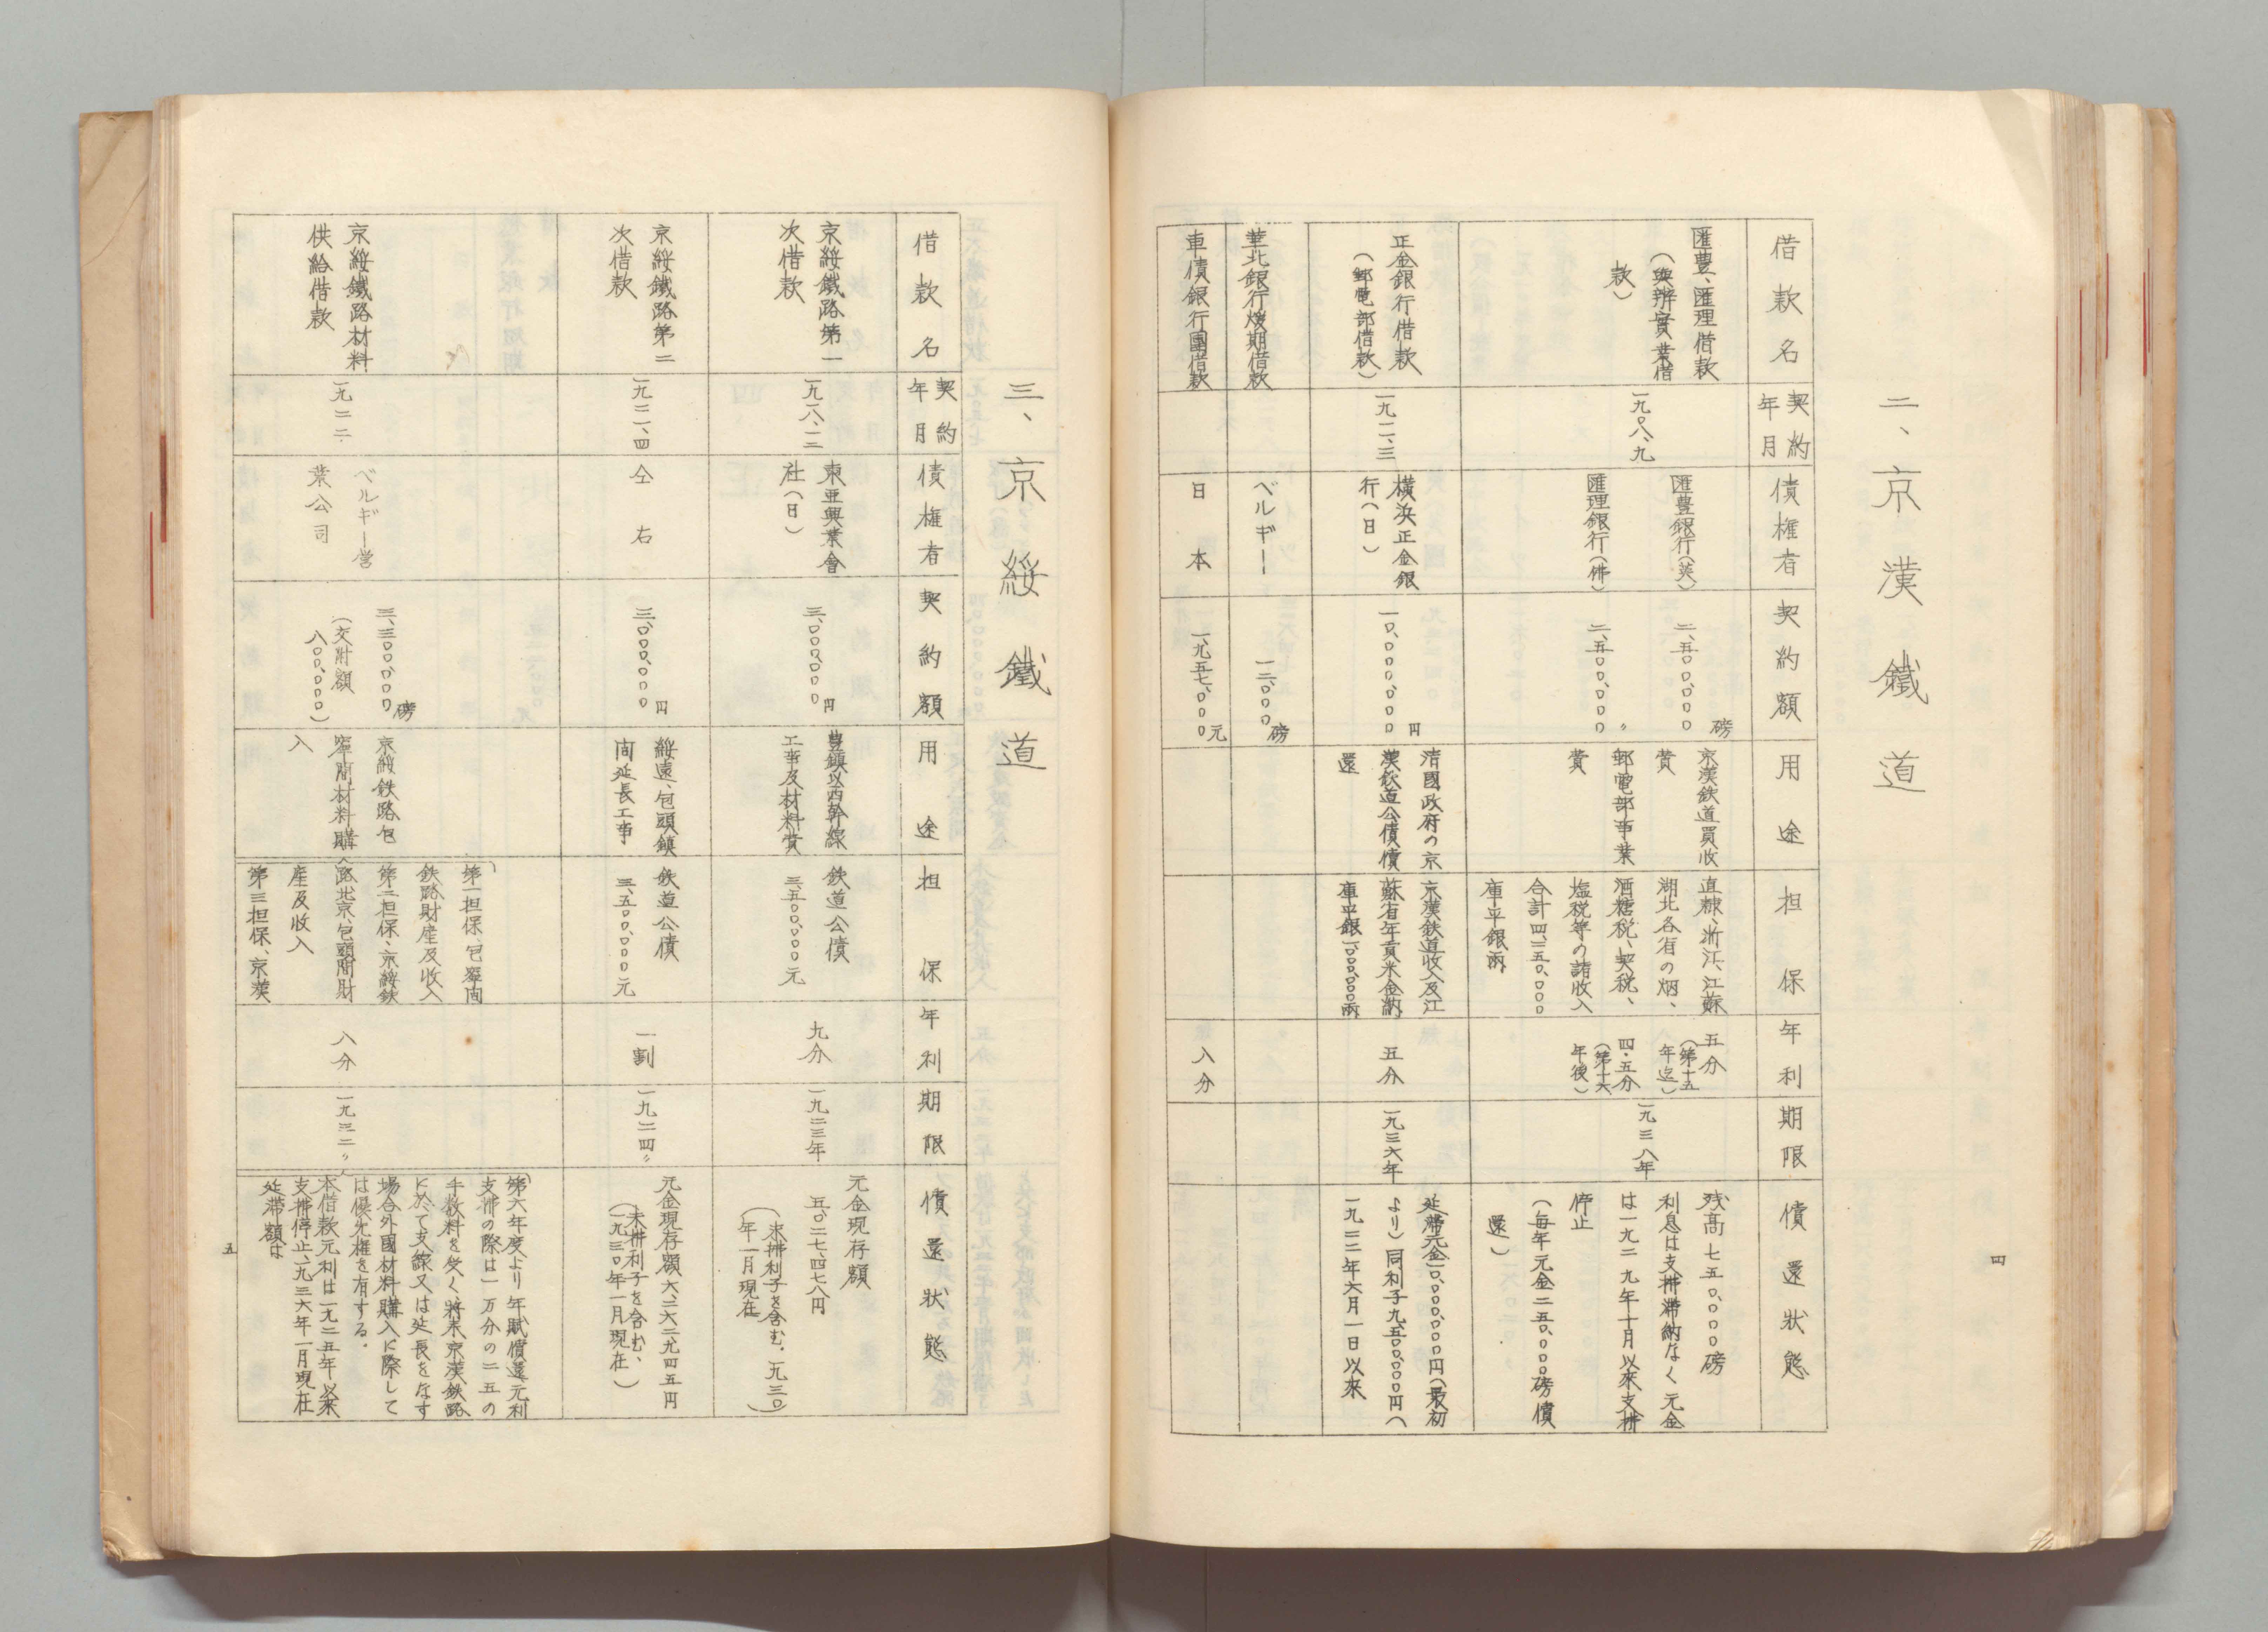 二、京漢鐵道
借款名
契約
年月
債権者
契約額
用途
担保
年利
期限
償還狀態
匯豊、匯理借款
（興辨實業借
款）
一九〇八、九
匯豊銀行（英）
匯理銀行（佛）
二、五〇〇、〇〇〇磅
二、五〇〇、〇〇〇〃
京漢鉄道買收
費
郵電部事業
費
直隷、浙江、江蘇
湖北各省の烟、
酒糖税、契税、
塩税等の諸收入
合計四、二五〇、〇〇〇
庫平銀両
五分
（第十五
年迄）
四・五分
（第十六
年後）
一九三八年
残高七五〇、〇〇〇磅
利息は支拂滯納なく元金
は一九二九年十月以來支拂
停止
（毎年元金二五〇、〇〇〇磅償
還）
正金銀行借款
（郵電部借款）
一九一一、三
橫浜正金銀
行（日）
一〇、〇〇〇、〇〇〇円
清國政府の京
漢鉄道公債償
還
京漢鉄道收入及江
蘇省年貢米金納
庫平銀一、〇〇〇、〇〇〇両
五分
一九三六年
延滯元金一〇、〇〇〇、〇〇〇円（最初
より）同利子九、五〇〇、〇〇〇円（
一九二二年六月一日以來
華北銀行煖期借款
ベルギー
一二、〇〇〇磅
車債銀行團借款
日本
一、九五七、〇〇〇元
八分
四
三、京綏鐵道
借款名
契約
年月
債権者
契約額
用途
担保
年利
期限
償還狀態
京綏鐵路第一
次借款
一九一八、一二
東亜興業會
社（日）
三、〇〇〇、〇〇〇円
豊鎮以西幹線
工事及材料費
鉄道公債
三、五〇〇、〇〇〇元
九分
一九二三年
元金現存額
五、〇二七、四七八円
（未拂利子を含む．一九三〇
年一月現在）
京綏鐵路第二
次借款
一九二一、四
仝右
三、〇〇〇、〇〇〇円
綏遠、包頭鎮
間延長工事
鉄道公債
三、五〇〇、〇〇〇元
一割
一九二四〃
元金現存額六、二六二、九四五円
（未拂利子を含む、
一九三〇年一月現在）
京綏鐵路材料
供給借款
一九二二
ベルギー営
業公司
三、三〇〇、〇〇〇磅
（交附額
八〇〇、〇〇〇）
京綏鉄路包
寧間材料購
入
第一担保、包寧間
鉄路財産及收入
第二担保、京綏鉄
路北京、包頭間財
産及收入
第三担保、京漢
八分
一九三二〃
第六年度より年賦償還元利
支拂の際は一万分の二五の
手数料を受く將來京漢鉄路
に於て支線又は延長をなす
場合外國材料購入に際して
は優先權を有する．
本借款元利は一九二五年以來
支拂停止、一九三六年一月現在
延滯額は
五